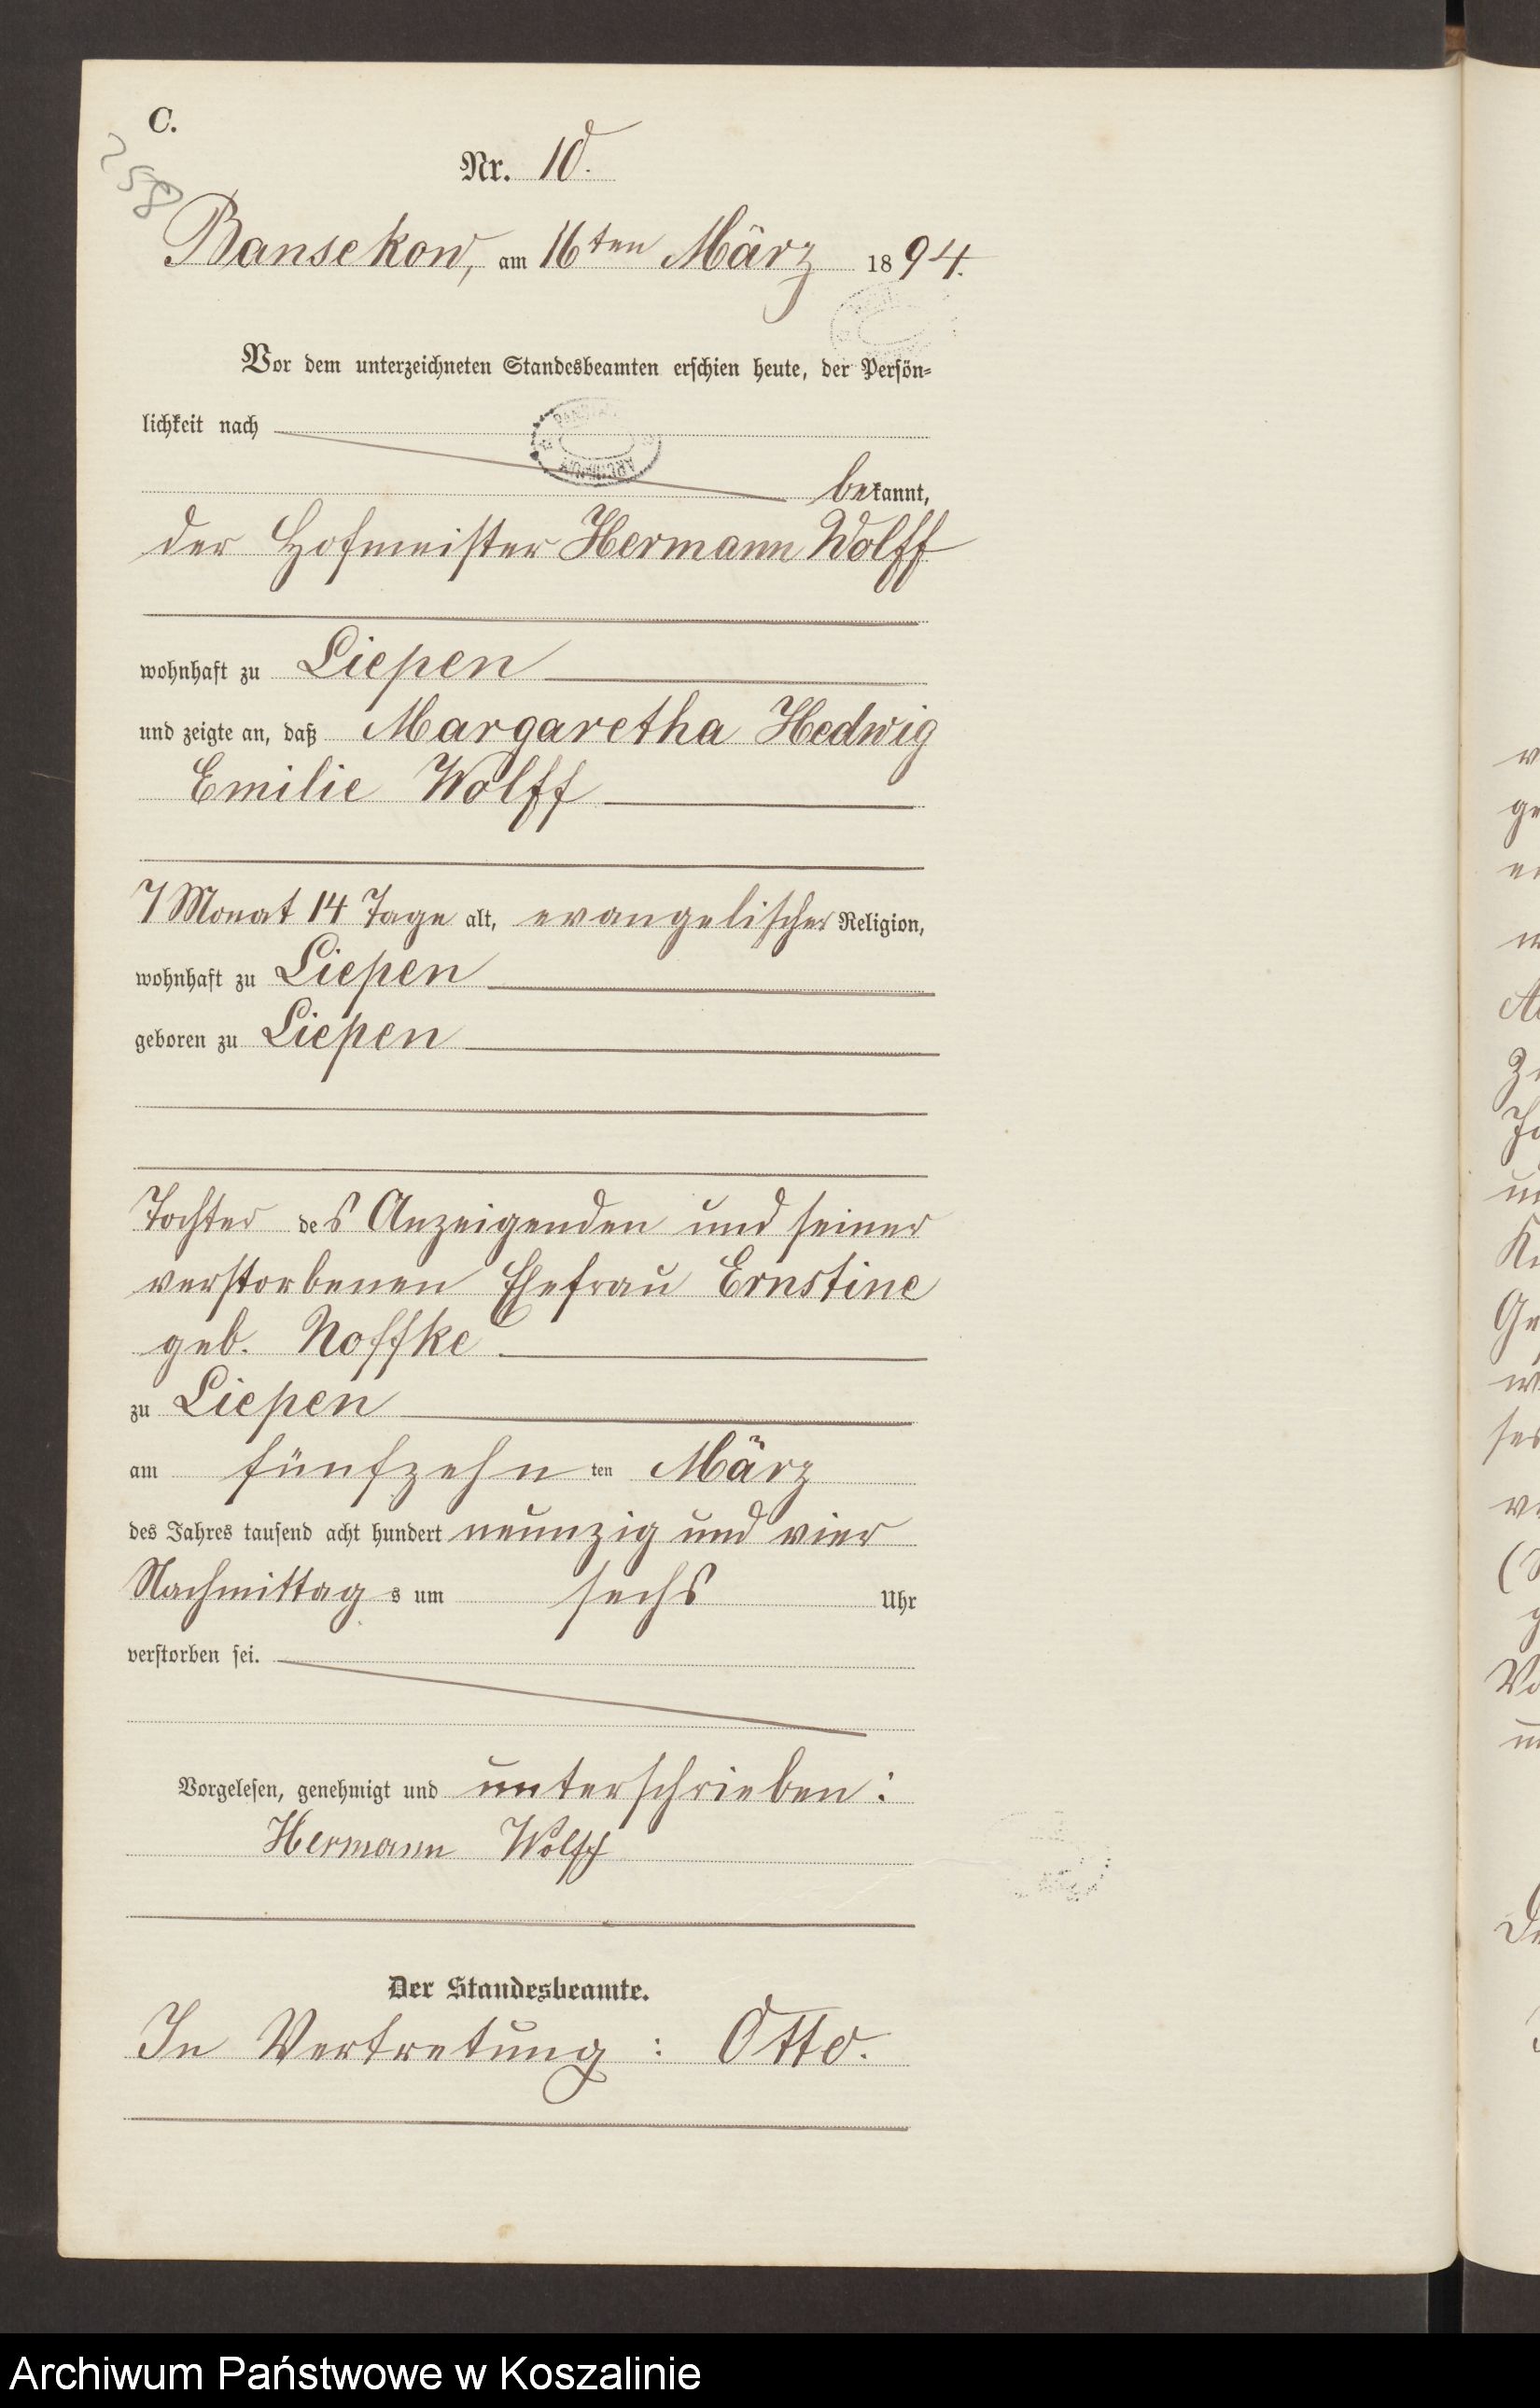 C.
258
Nr. 10.
Bansekow, am 16ten März 1894.
Vor dem unterzeichneten Standesbeamten erschien heute, der Persön-
lichkeit nach
bekannt,
der Hofmeister Hermann Wolff
wohnhaft zu Liepen
und zeigte an, daß Margaretha Hedwig
Emilie Wolff
7 Monat 14 Tage alt, evangelischer Religion,
wohnhaft zu Liepen
geboren zu Liepen
Tochter des Anzeigenden und seiner
verstorbenen Ehefrau Ernstine
geb. Noffke
zu Liepen
am fünfzehn ten März
des Jahres tausend acht hundert neunzig und vier
Nachmittag s um sechs Uhr
verstorben sei.
Vorgelesen, genehmigt und unterschrieben:
Hermann Wolff
Der Standesbeamte.
In Vertretung: Otto.
Archiwum Państwowe w Koszalinie